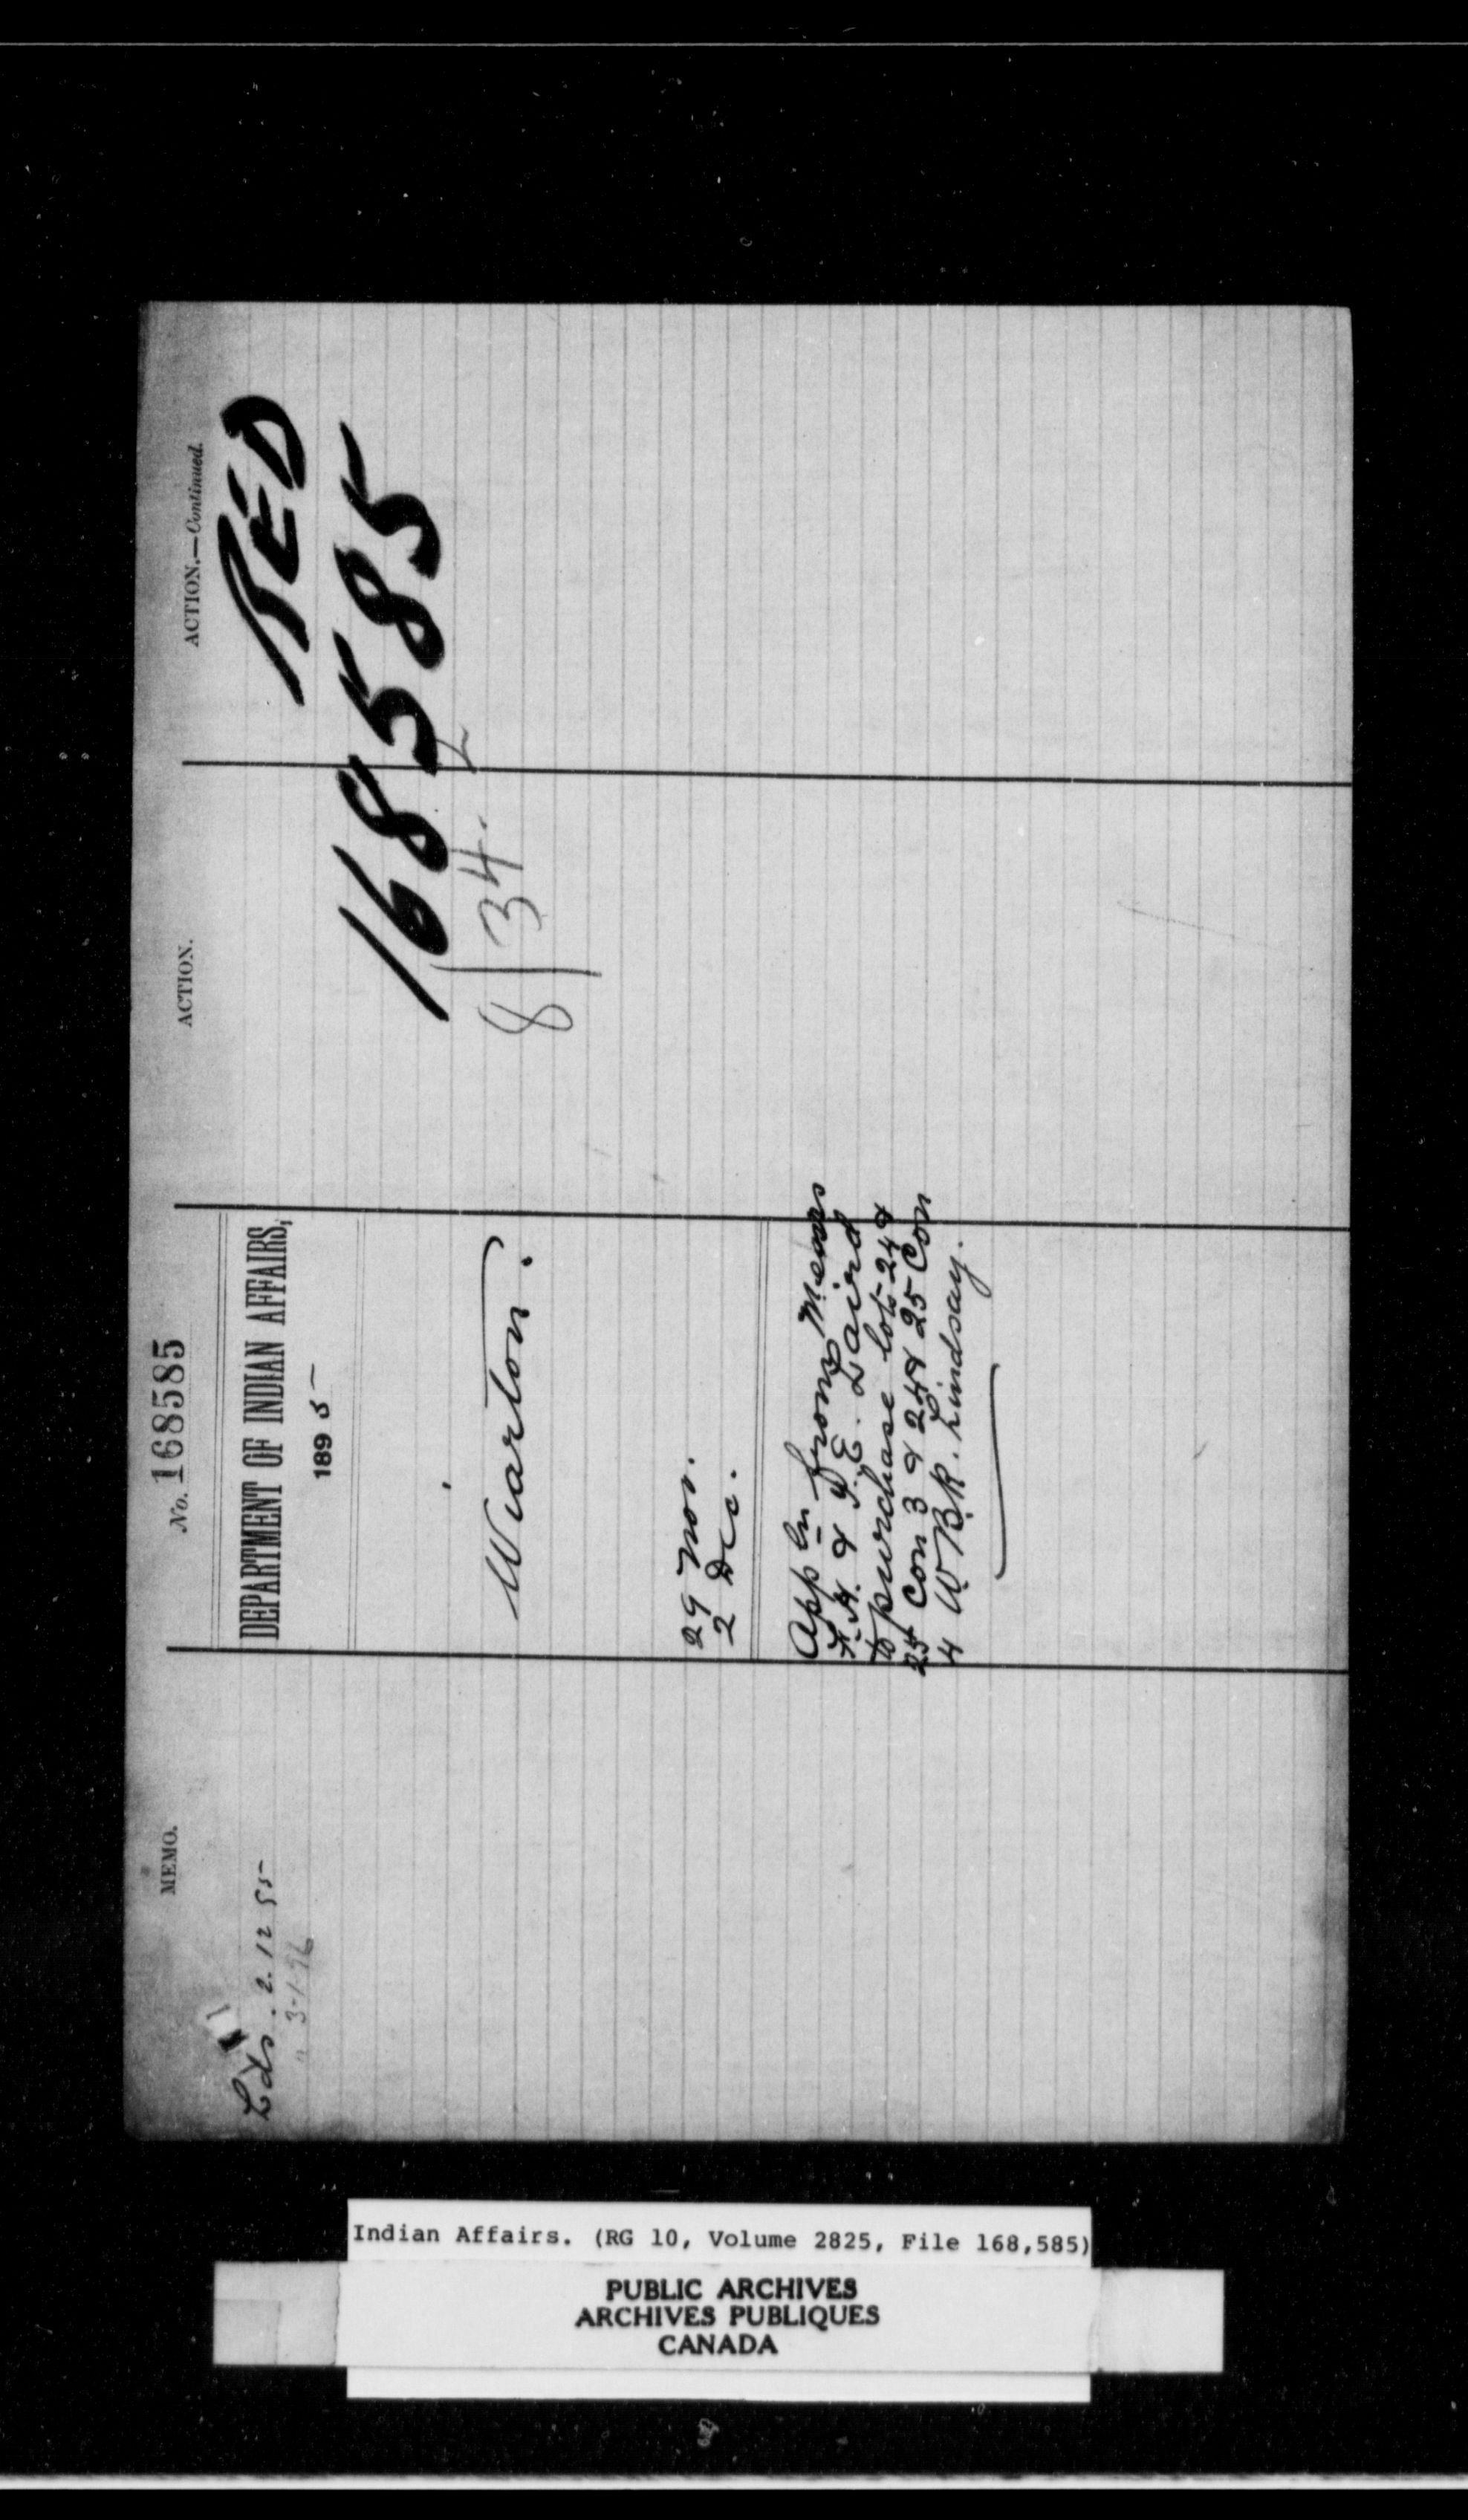 MEMO.
Lds. 2.12.95
" 3-1-96
No. 168585
DEPARTMENT OF INDIAN AFFAIRS,
1895
Wiarton.
29 Nov.
2 Dec.
Appln from Messrs
& T. E. Laird
to purchase lots 24 &
25 Con 3 & 24 & 25 Con
4 W.B.R. Lindsay.
ACTION.
8/34.
ACTION.—Continued.
RED
168585
Indian Affairs. (RG 10, Volume 2825, File 168,585)
PUBLIC ARCHIVES
ARCHIVES PUBLIQUES
CANADA